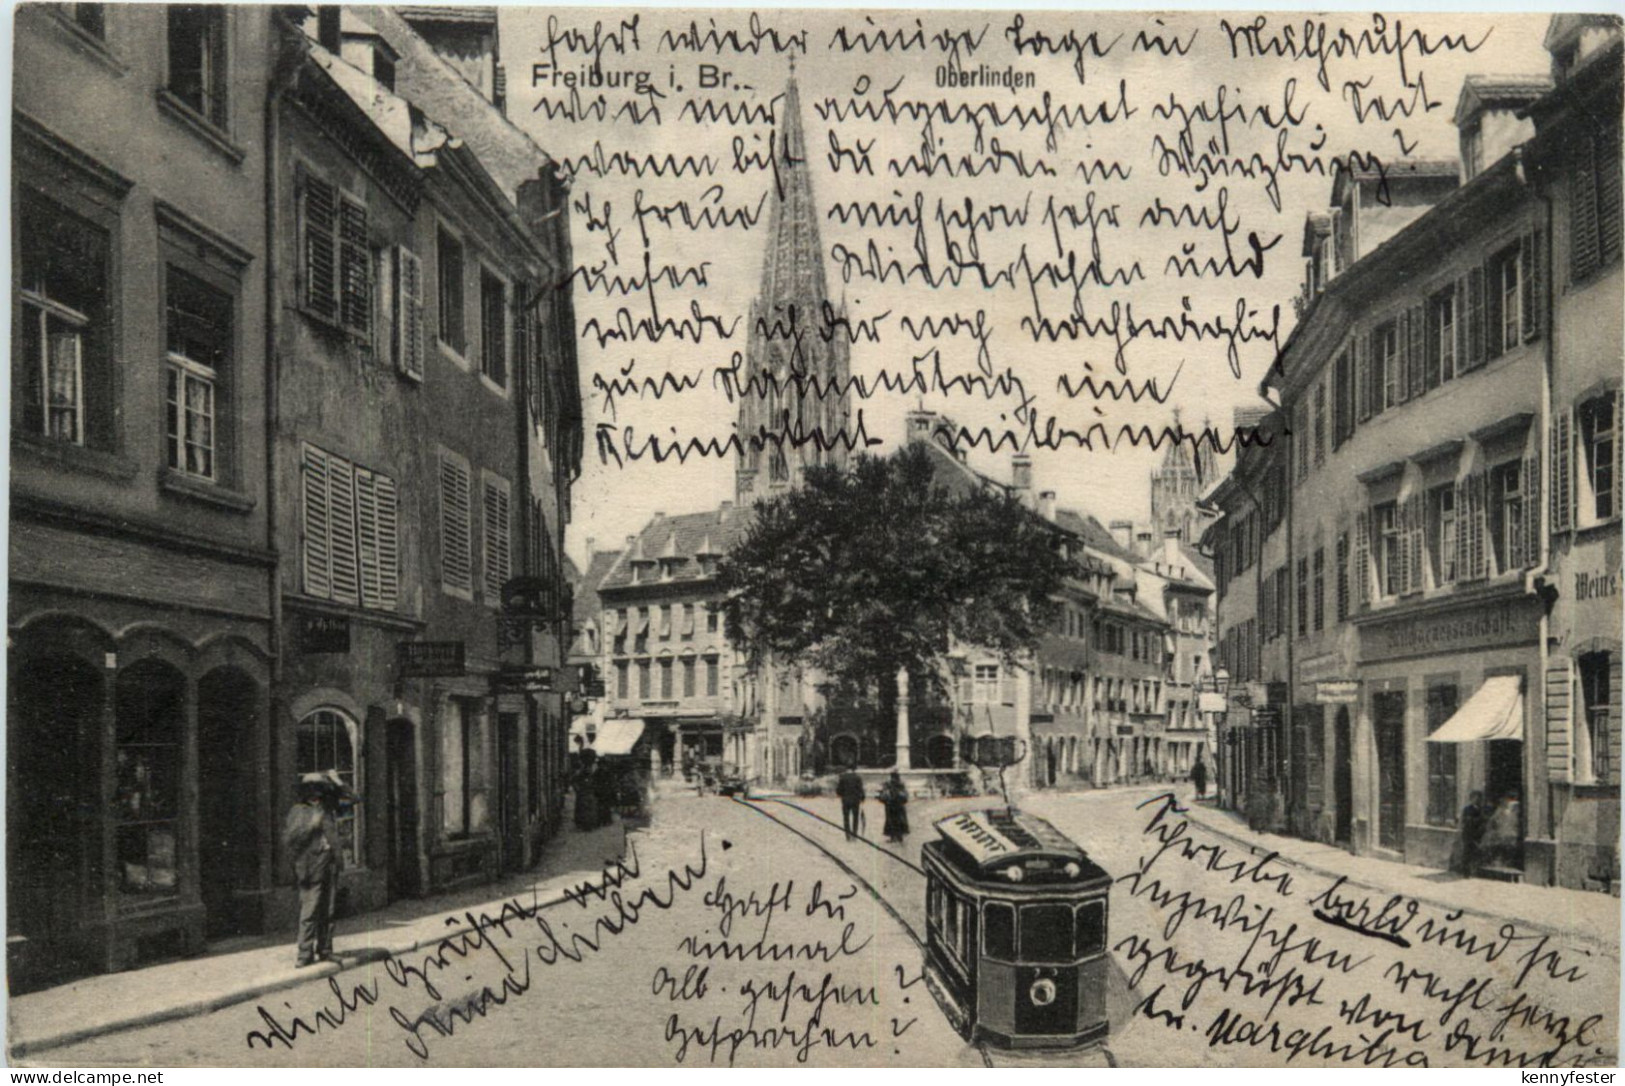 fahrt wieder einige Tage in Mülhausen
Freiburg i. Br.. Oberlinden
wo es mir ausgezeichnet gefiel. Seit
wann bist du wieder in Würzburg?
Ich freue mich schon sehr auf
unser Wiedersehen und
werde ich dir noch nachträglich
zum Namenstag eine
Kleinigkeit mitbringen.
Weine
Schreibe bald und sei
inzwischen recht herzl.
gegrüßt von Deiner
tr.
Hast du
einmal
Alb. gesehen?
Gesprochen?
Viele Grüße an
deine Lieben.
Delcampe.net
kennyfester